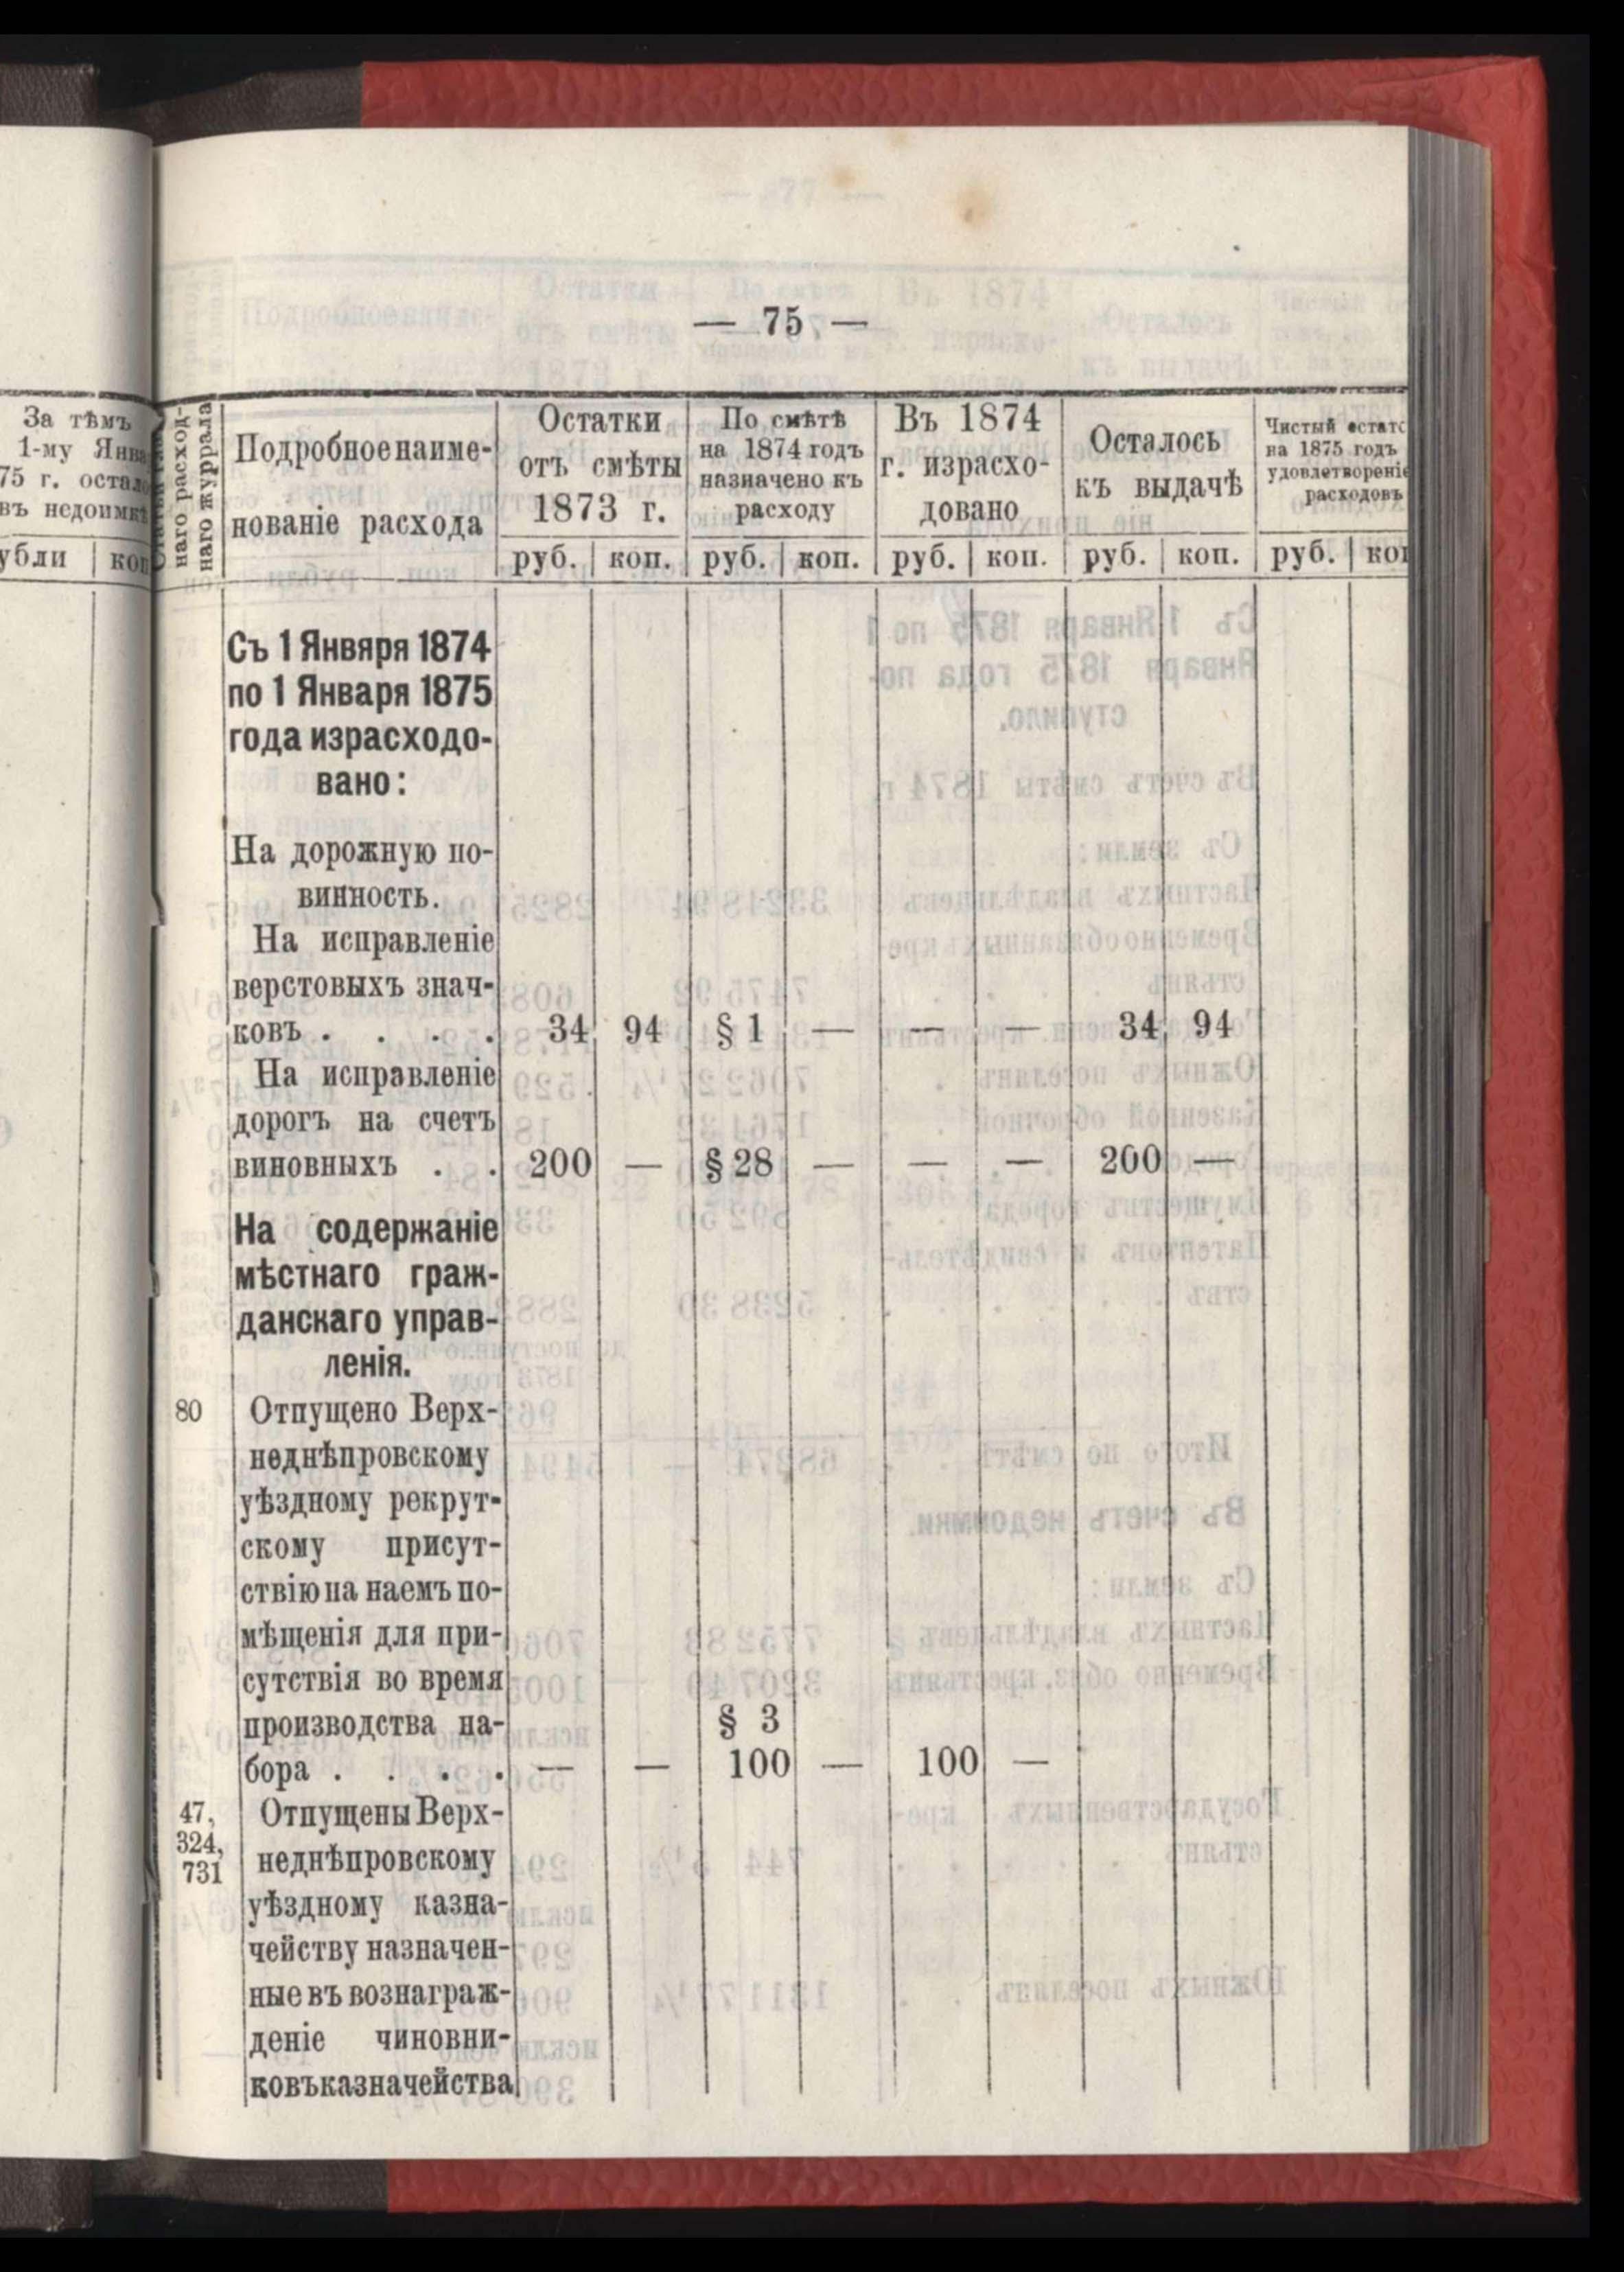 — 75 —
За тѣмъ
1-му
75 г.
въ недоимкѣ
наго расход-
наго журрала
Подробное наиме-
нованіе расхода
Остатки
отъ смѣты
1873 г.
По смѣтѣ
на 1874 годъ
назначено къ
расходу
Въ 1874
г. израсхо-
довано
Осталось
къ выдачѣ
Чистый
на 1875 годъ
удовлетвореніе
расходовъ
руб. коп. руб. коп. руб. коп. руб. коп. руб.
Съ 1 Января 1874
по 1 Января 1875
года израсходо-
вано:
На дорожную по-
винность.
На исправленіе
верстовыхъ знач-
ковъ . . . . 34 94 § 1 — — — 34 94
На исправленіе
дорогъ на счетъ
виновныхъ . . 200 — § 28 — — — 200 —
На содержаніе
мѣстнаго граж-
данскаго управ-
ленія.
80 Отпущено Верх-
неднѣпровскому
уѣздному рекрут-
скому присут-
ствію на наемъ по-
мѣщенія для при-
сутствія во время
производства на- § 3
бора . . . . — — 100 — 100 —
47, Отпущены Верх-
324,
731 неднѣпровскому
уѣздному казна-
чейству назначен-
ные въ вознаграж-
деніе чиновни-
ковъ казначейства